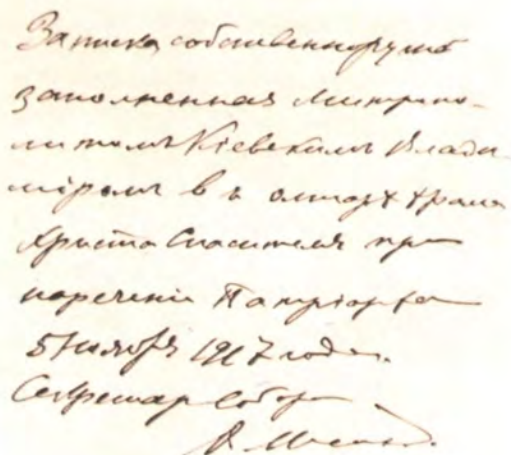 Записка собственноручно
заполненная Митропо-
литомъ Кіевскимъ Влади
міромъ въ олтарѣ храма
Христа Спасителя при
нареченіи Патріарха
5 Ноября 1917 года.
Секретарь Собора